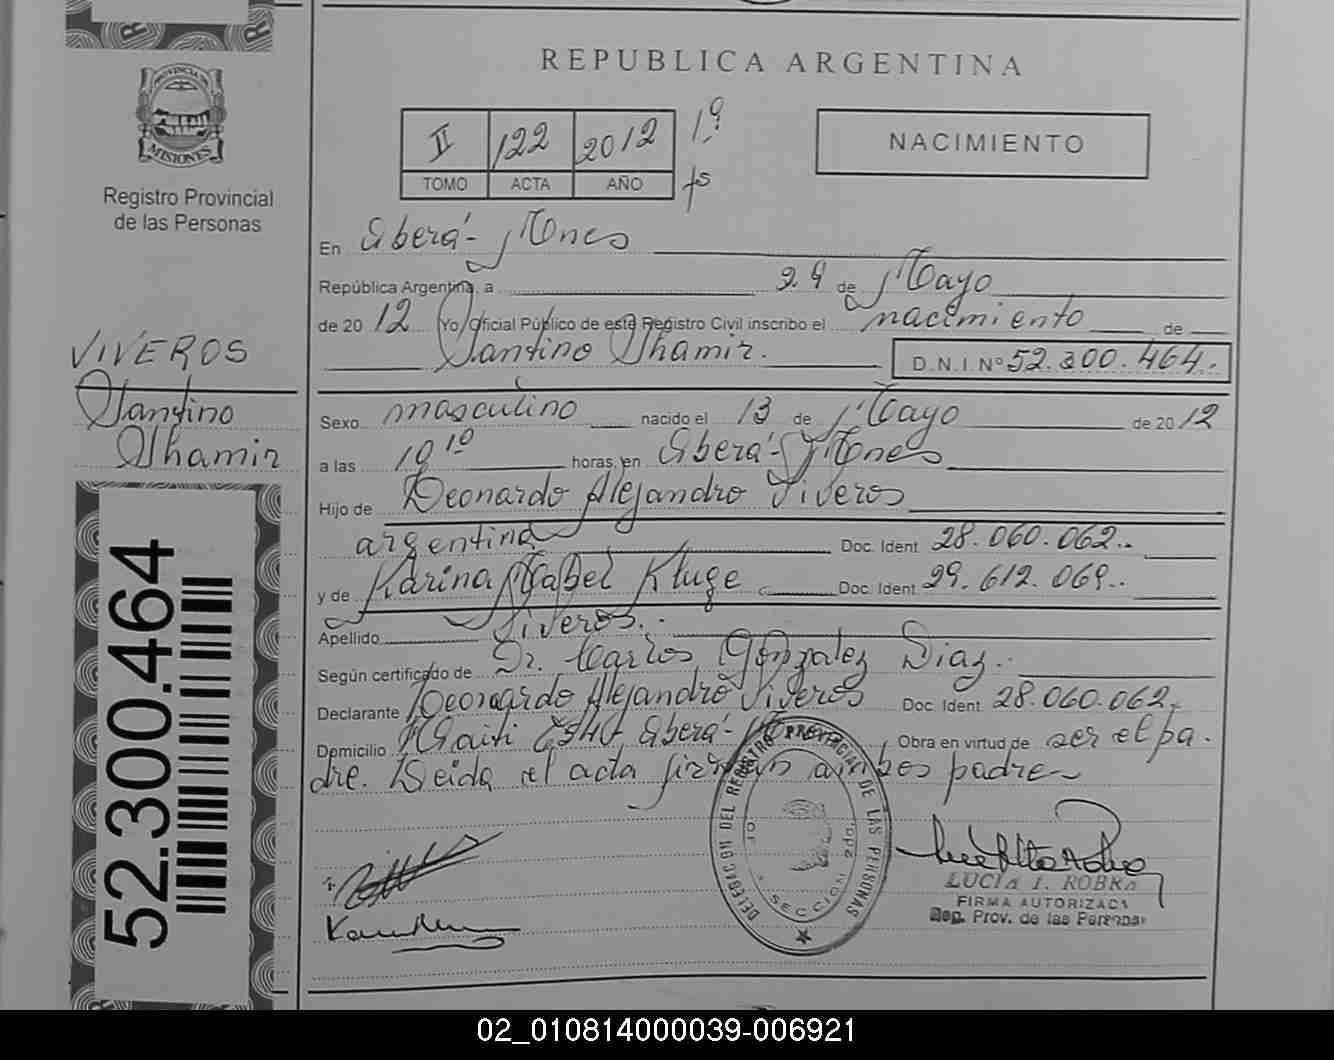 REPUBLICA ARGENTINA
PROVINCIA DE
MISIONES
Registro Provincial
de las Personas
II 122 2012 1º
TOMO ACTA AÑO fs
NACIMIENTO
En Oberá - Mnes
República Argentina, a 29 de Mayo
de 2012 Yo Oficial Público de este Registro Civil inscribo el nacimiento de
Santino Thamir. D.N.I. Nº 52.300.464.
VIVEROS
Santino
Thamir
Sexo masculino nacido el 13 de Mayo de 2012
a las 19 10 horas, en Oberá - Mnes
Hijo de Leonardo Alejandro Viveros
argentina Doc. Ident. 28.060.062.
y de Karina Mabel Kluge Doc. Ident. 29.612.069.
Apellido Viveros.
Según certificado de Dr. Carlos González Diaz.
Declarante Leonardo Alejandro Viveros Doc. Ident. 28.060.062.
Domicilio Haiti Oberá - Obra en virtud de ser el pa
dre. Leida el acta firman ambos padres
52.300.464
DELEGACION DEL REGISTRO PROVINCIAL DE LAS PERSONAS
SECCION
LUCIA I. ROBRA
FIRMA AUTORIZADA
Reg. Prov. de las Personas
02_010814000039-006921